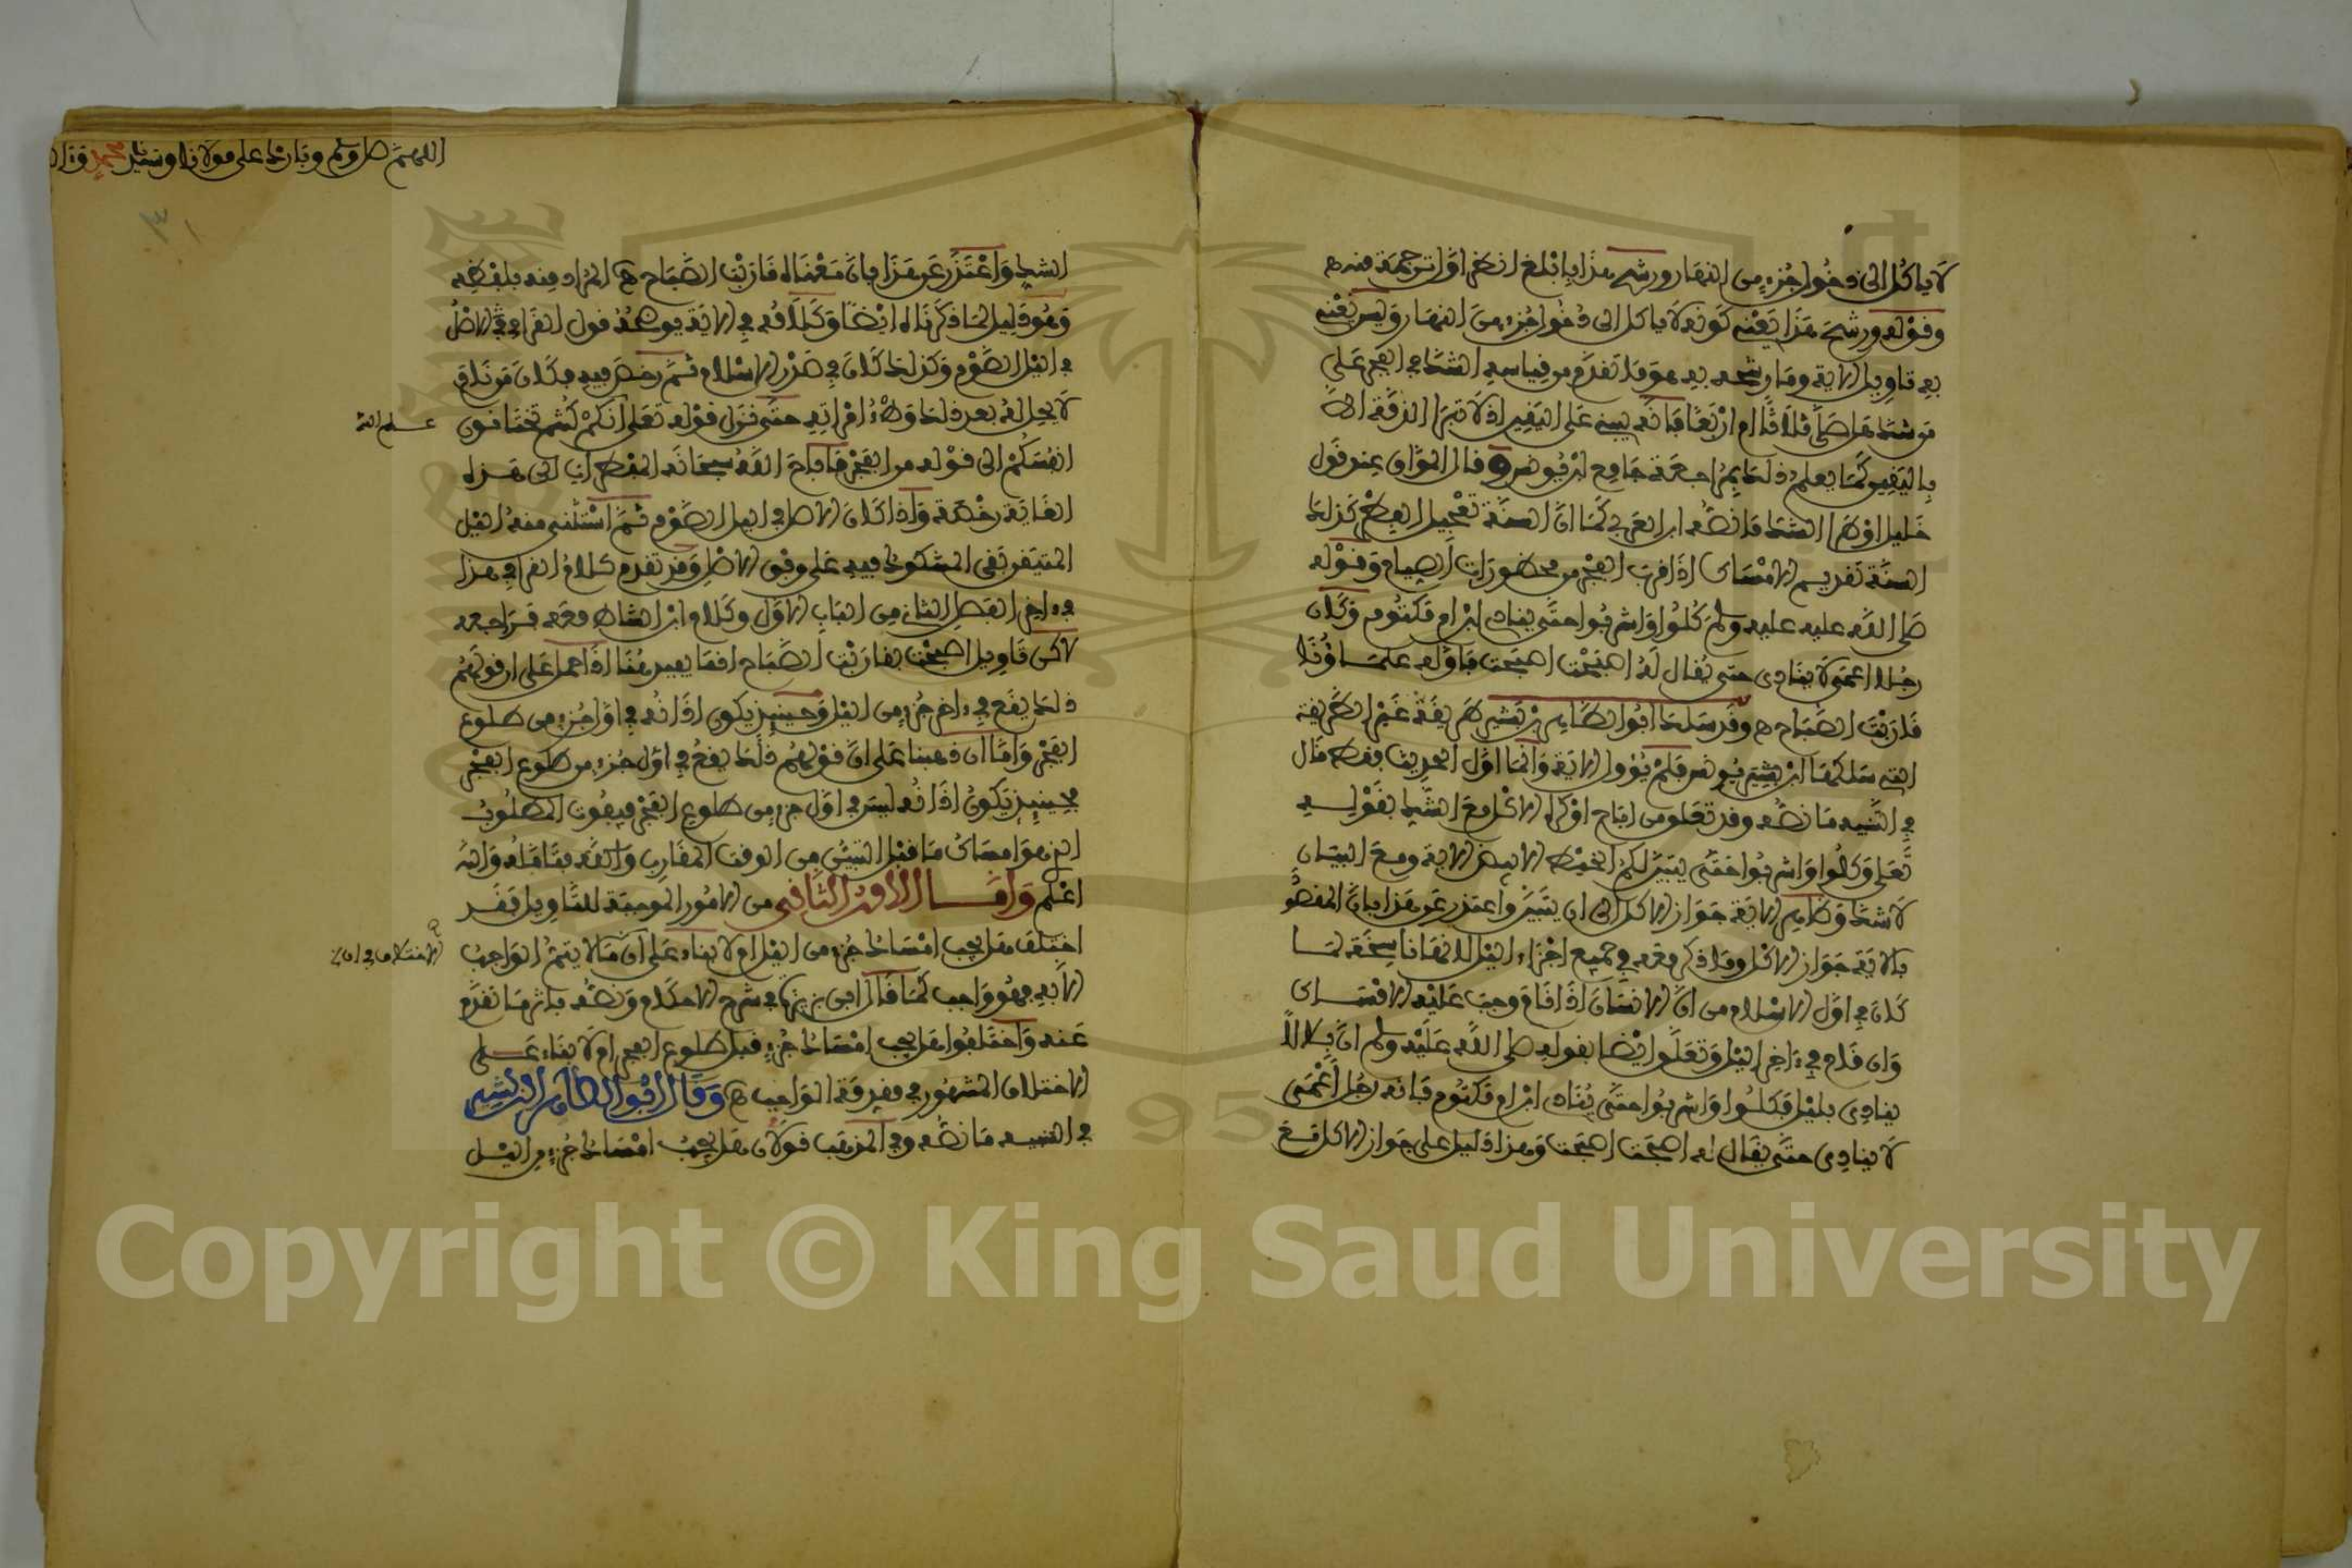 لا ياكل الى دخول جزء من النهار ورشح هذا بابلغ انظر اول ترجمة منه ه
وقوله ورشح هذا يعني كونه لا ياكل الى دخول جزء من النهار وليس يعني
به تاويل الاية وما رشحه به هو ما تقدم من قياسه الشك في الفجر على
من شك هل صلى ثلاثا ام اربعا فانه يبني على اليقين اذ لا تبرا الذمة الا
باليقين كما يعلم ذلك بمراجعة جامع ابن يونس وقال المواق عند قول
خليل او طرا الشك ما نصه ابن العربي كما ان السنة تعجيل الفطر كذلك
السنة تقديم الامساك اذا قرب الفجر من محظورات الصيام وقوله
صلى الله عليه عليه وسلم كلوا واشربوا حتى ينادي ابن ام مكتوم وكان
رجلا اعمى لا ينادي حتى يقال له اصبحت اصبحت فاوله علماؤنا
قاربت الصباح ه وقد سلك ابو الطاهر بن بشير طريقة غير الطريقة
التي سلكها ابن يونس فلم يؤول الاية وانما اول الحديث فقط قال
في التنبيه ما نصه وقد تعلق من اباح او كره الاكل مع الشك بقوله
تعلى وكلوا واشربوا حتى يتبين لكم الخيط الابيض الاية ومع البيان
لا شك وظاهر الاية جواز الاكل الى ان يتبين واعتذر عن هذا بان المقصود
بالاية جواز الاكل وما ذكر معه في جميع اجزاء الليل لانها ناسخة لما
كان في اول الاسلام من ان الانسان اذا نام وجب عليه الامساك
وان قام في ءاخر الليل وتعلق ايضا بقوله صلى الله عليه وسلم ان بلالا
ينادي بليل فكلوا واشربوا حتى ينادي ابن ام مكتوم فانه رجل اعمى
لا ينادي حتى يقال له اصبحت اصبحت وهذا دليل على جواز الاكل مع
اللهم صل وسلم وبارك على مولانا وسيدنا محمد
الشك واعتذر عن هذا بان معناه قاربت الصباح ه المراد منه بلفظه
وهو دليل لما ذكرناه ايضا وكلامه في الاية يوضحه قول القرافي الاصل
في الليل الصوم وكذلك كان في صدر الاسلام ثم رخص فيه فكان من نام
لا يحل له بعد ذلك وطء امراته حتى نزل قوله تعلى انكم كنتم تختانون
علم الله
انفسكم الى قوله من الفجر فاباح الله سبحانه المفطرات الى هذه
الغاية رخصة واذا كان الاصل في الليل الصوم ثم استثني منه الليل
المتيقن بقي المشكوك فيه على وفق الاصل وقد تقدم كلام القرافي هذا
في ءاخر الفصل الثاني من الباب الاول وكلام ابن الشاط معه فراجعه
لاكن تاويل اصبحت بقاربت الصباح انما يفيد هنا اذا حمل على ان قولهم
ذلك يقع في ءاخر جزء من الليل وحينئذ يكون اذانه في اول جزء من طلوع
الفجر واما ان ذهبنا على ان قولهم ذلك يقع في اول جزء من طلوع الفجر
فحينئذ يكون اذانه ليس في اول جزء من طلوع الفجر فيفوت المطلوب
الذي هو امساك ما قبل التبين من الوقت المقارب والله
اعلم واما الامر الثاني من الامور الموجبة للتاويل فقد
اختلف هل يجب امساك جزء من الليل ام لا بناء على ان ما لا يتم الواجب
الا به فهو واجب كما قال ابن بزيزة في شرح الاحكام ونصه باثر ما تقدم
عنه واختلفوا هل يجب امساك جزء قبل طلوع الفجر ام لا بناء على
الاختلاف المشهور في مقدمة الواجب ه وقال ابو الطاهر بن بشير
في التنبيه ما نصه وفي المذهب قولان هل يجب امساك جزء من الليل